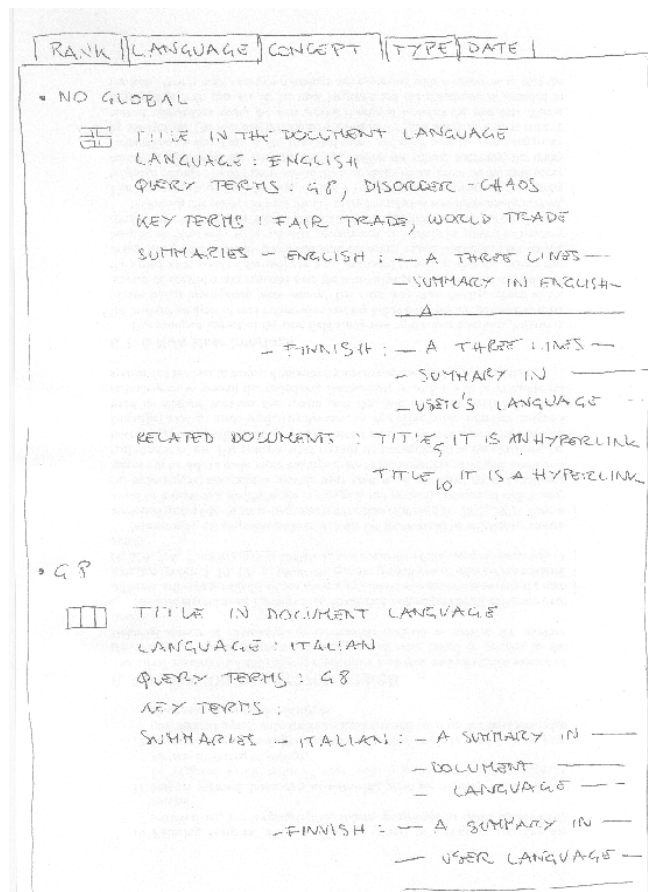 RANK LANGUAGE CONCEPT TYPE DATE
• NO GLOBAL
TITLE IN THE DOCUMENT LANGUAGE
LANGUAGE : ENGLISH
QUERY TERMS : G8, DISORDER - CHAOS
KEY TERMS : FAIR TRADE, WORLD TRADE
SUMMARIES - ENGLISH : — A THREE LINES —
— SUMMARY IN ENGLISH —
— A —
- FINNISH : — A THREE LINES —
— SUMMARY IN —
— USER'S LANGUAGE —
RELATED DOCUMENT : TITLE5 IT IS AN HYPERLINK
TITLE10 IT IS A HYPERLINK
• G8
TITLE IN DOCUMENT LANGUAGE
LANGUAGE : ITALIAN
QUERY TERMS : G8
KEY TERMS :
SUMMARIES - ITALIAN : — A SUMMARY IN —
— DOCUMENT —
— LANGUAGE —
- FINNISH : — A SUMMARY IN —
— USER LANGUAGE —